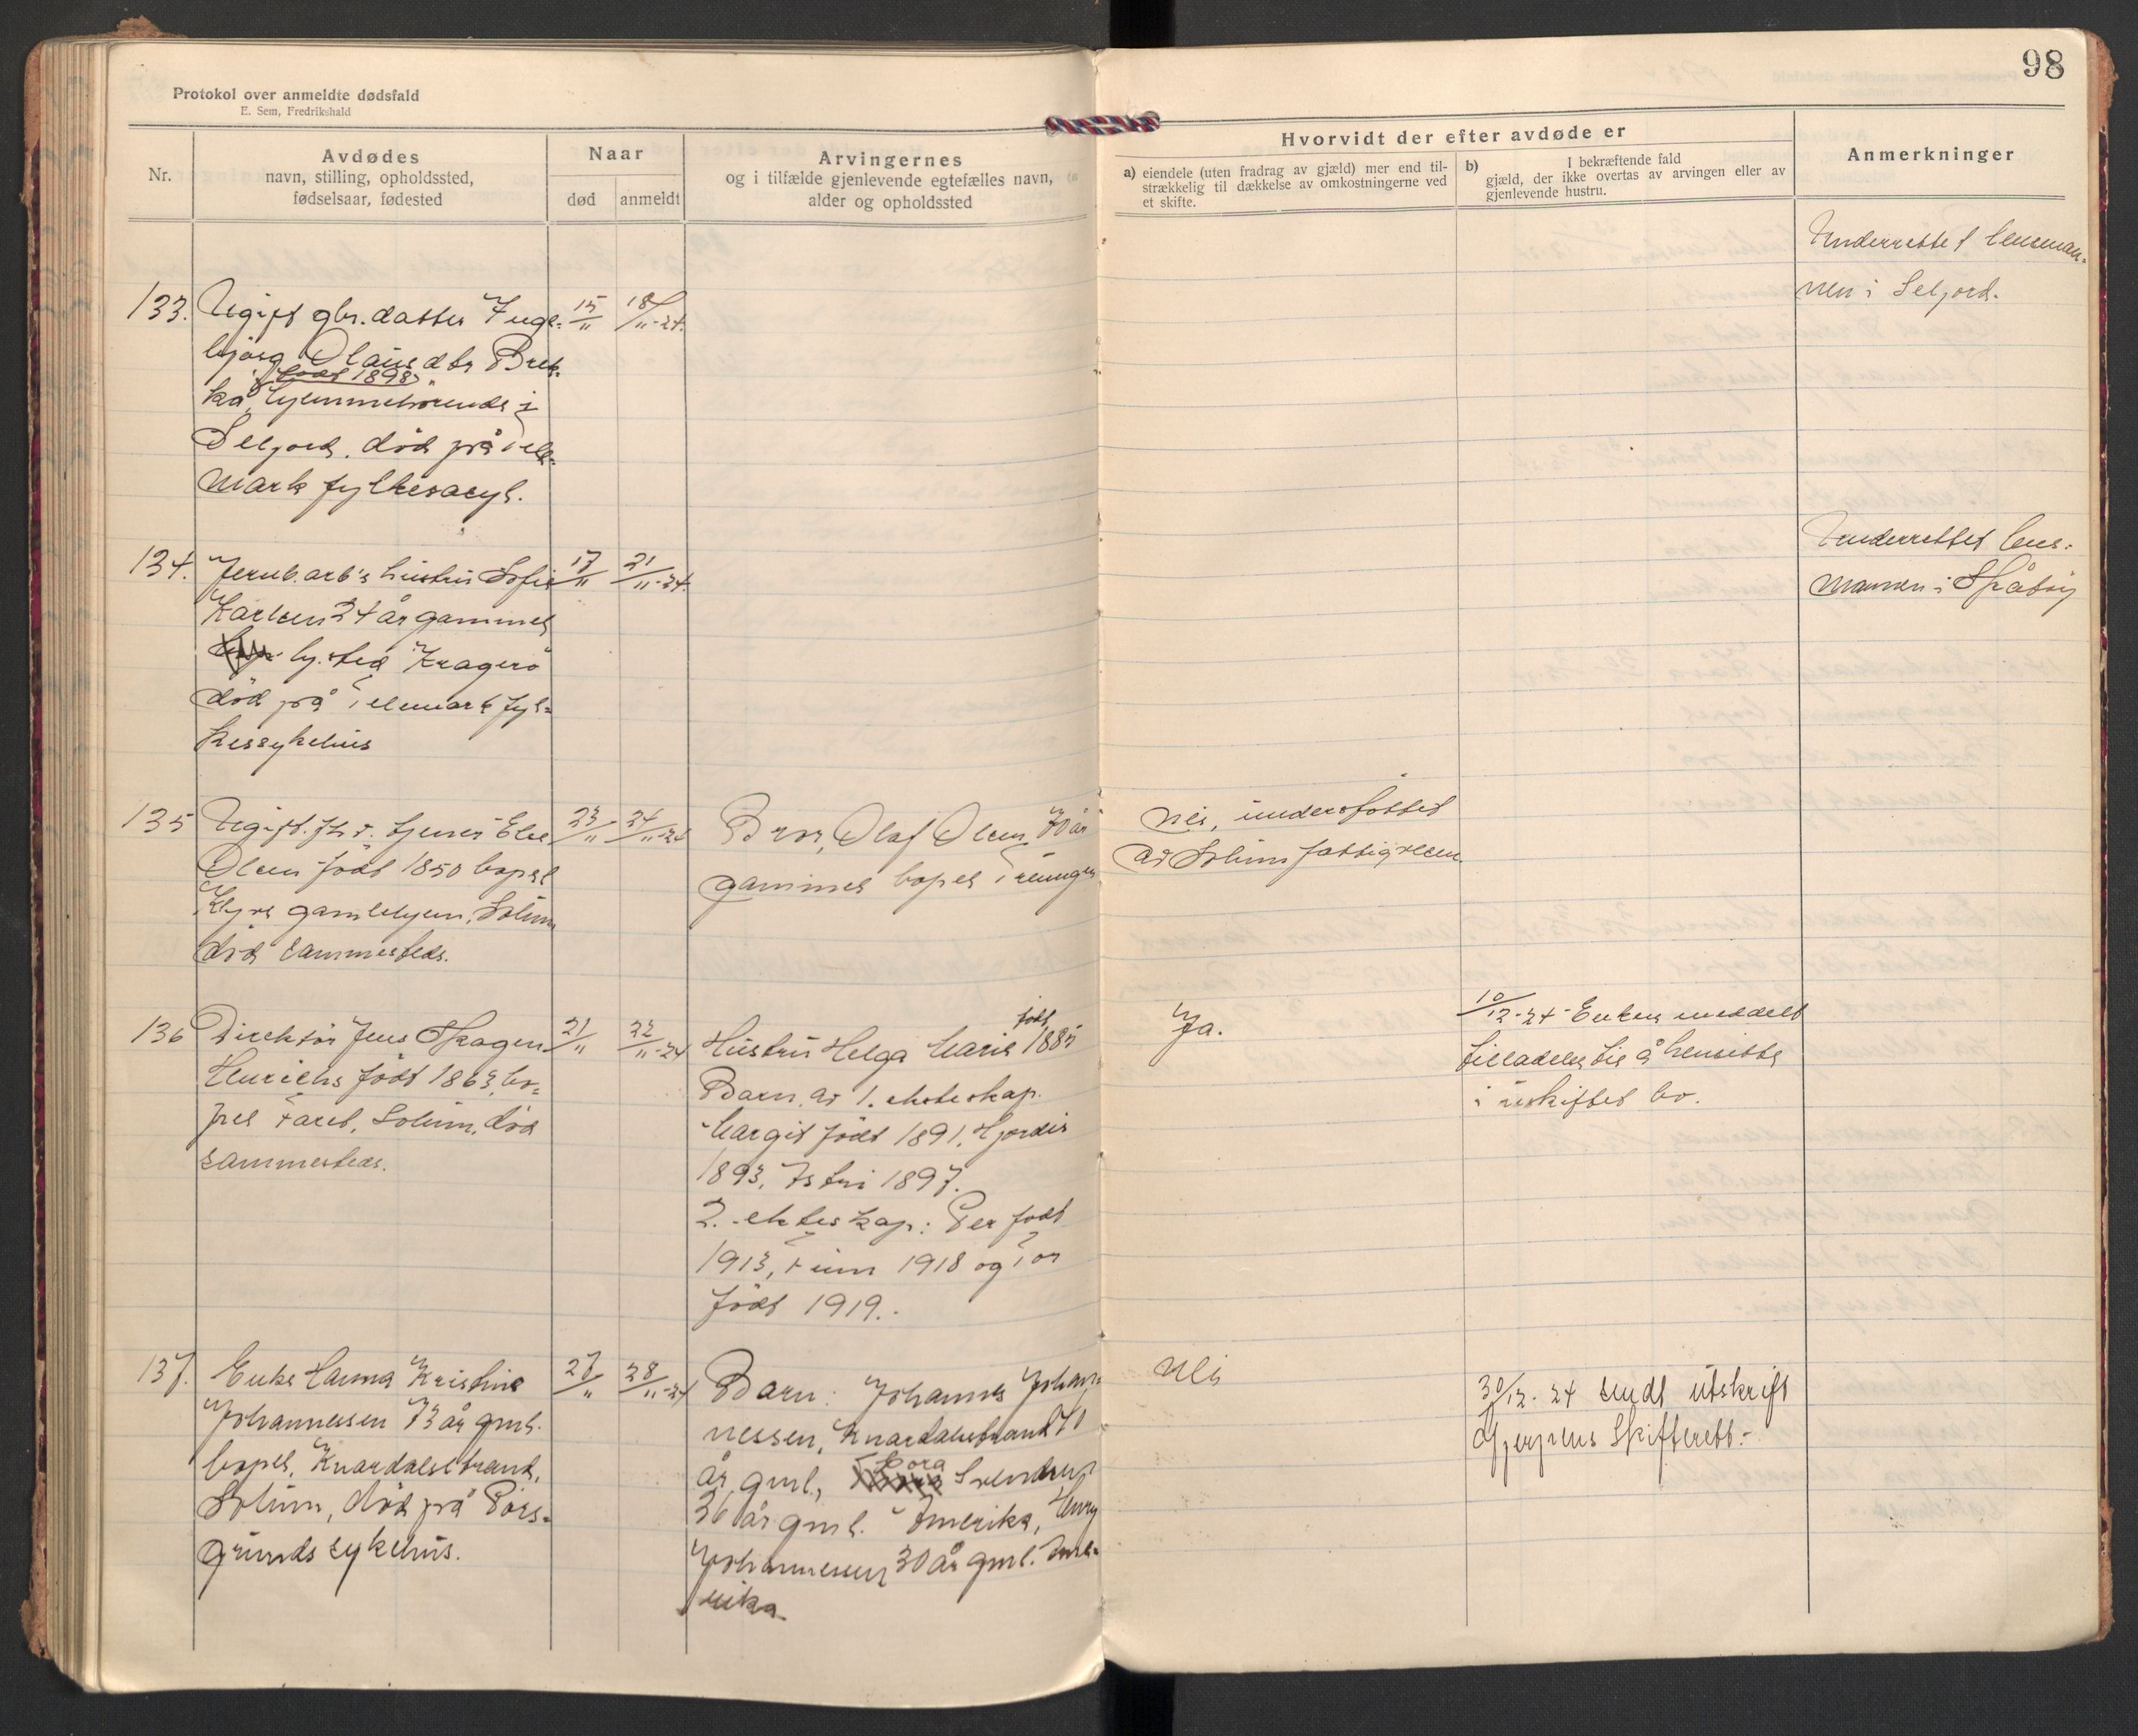 98
Protokol over anmeldte dødsfald
E. Sem, Fredrikshald
Nr.
Avdødes
navn, stilling, opholdssted,
fødselsaar, fødested
Naar
død
anmeldt
Arvingernes
og i tilfælde gjenlevende egtefælles navn,
alder og opholdssted
Hvorvidt der efter avdøde er
a) eiendele (uten fradrag av gjæld) mer end til-
strækkelig til dækkelse av omkostningerne ved
et skifte.
b) I bekræftende fald
gjæld, der ikke overtas av arvingen eller av
gjenlevende hustru.
Anmerkninger
133. Ugift gbr. datter Inge-
bjørg Olausdtr
født 1898
hjemmehørende i
Seljord. død på Tele-
mark fylkesasyl.
15/11
18/11-24.
Underrettet lensman-
nen i Seljord.
134. Jernb.arb's hustru Sofie
Karlsen 24 år gammel
hj.sted Kragerø
død på Telemark fyl-
kessykehus
17/11
21/11-24.
Underrettet lens-
mannen i Skåtøy
135 Ugift. fhv. tjener Else
Olsen født 1850 bopæl
Klyve gamlehjem, Solum
død sammesteds.
23/11
24/11-24
Bror, Olaf Olsen, 70 år
gammel bopæl Treungen
Nei, understøttet
av Solum fattigvesen
136 Direktør Jens Skogen
Henrichs født 1863, bo-
pæl Faret, Solum, død
sammesteds.
21/11
22/11-24
Hustru Helga Marie født 1885
Barn av 1. ekteskap.
Margit født 1891, Hjørdis
1893, Astri 1897.
2. ekteskap: Per født
1913, Finn 1918 og Tor
født 1919.
Ja.
10/12-24 Enken meddelt
tilladelse til å hensitte
i uskiftet bo.
137. Enke Hanna Kristine
Johannessen 73 år gml.
bopæl, Knardalstrand,
Solum, død på Pors-
grunds sykehus.
27/11
28/11-24
Barn: Johannes Johan-
nessen, Knardalstrand 40
år gml., Tora Svendsen
36 år gml. Amerika, Henry
Johannessen 30 år gml. Ame-
rika
Nei
30/12-24 sendt utskrift
Gjerpens Skifterett.-